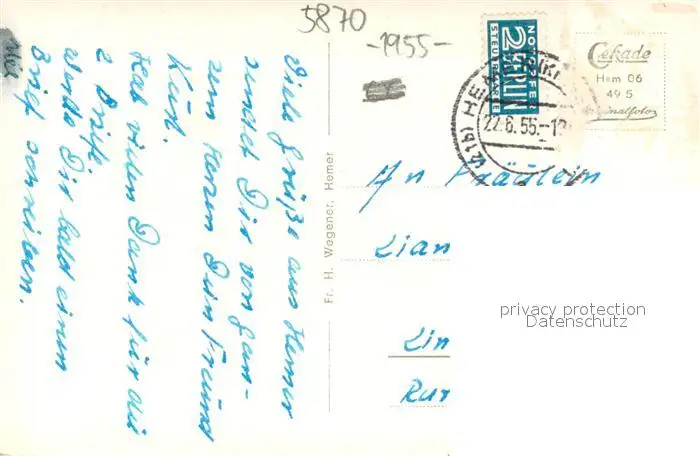 5870
-1955-
NOTOPFER
2 BERLIN
STEUERMARKE
(21b) HEMER
22.6.55.-1
Cekade
Hem 06
49 5
Originalfoto
Viele Grüße aus Hemer
sendet Dir von gan-
zem Herzen Dein Freund
Kurt.
Hab vielen Dank für die
2 Briefe.
Werde Dir bald einen
Brief schreiben.
Fr. H. Wegener, Hemer
An Fräulein
Lian
Lin
Rur
privacy protection
Datenschutz